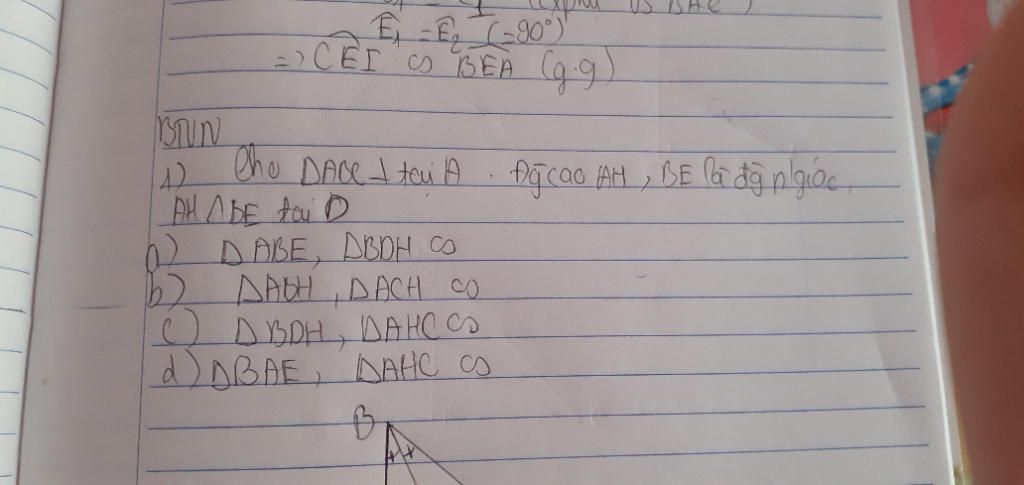 Ê₁ = Ê₂ (=90°)
=> CEI ∽ BEA (g.g)
BTVN
1) Cho ΔABC ⊥ tại A. Đg cao AH, BE là đg p/giác.
AH ∩ BE tại D
a) ΔABE, ΔBDH ∽
b) ΔABH, ΔACH ∽
c) ΔBDH, ΔAHC ∽
d) ΔBAE, ΔAHC ∽
B